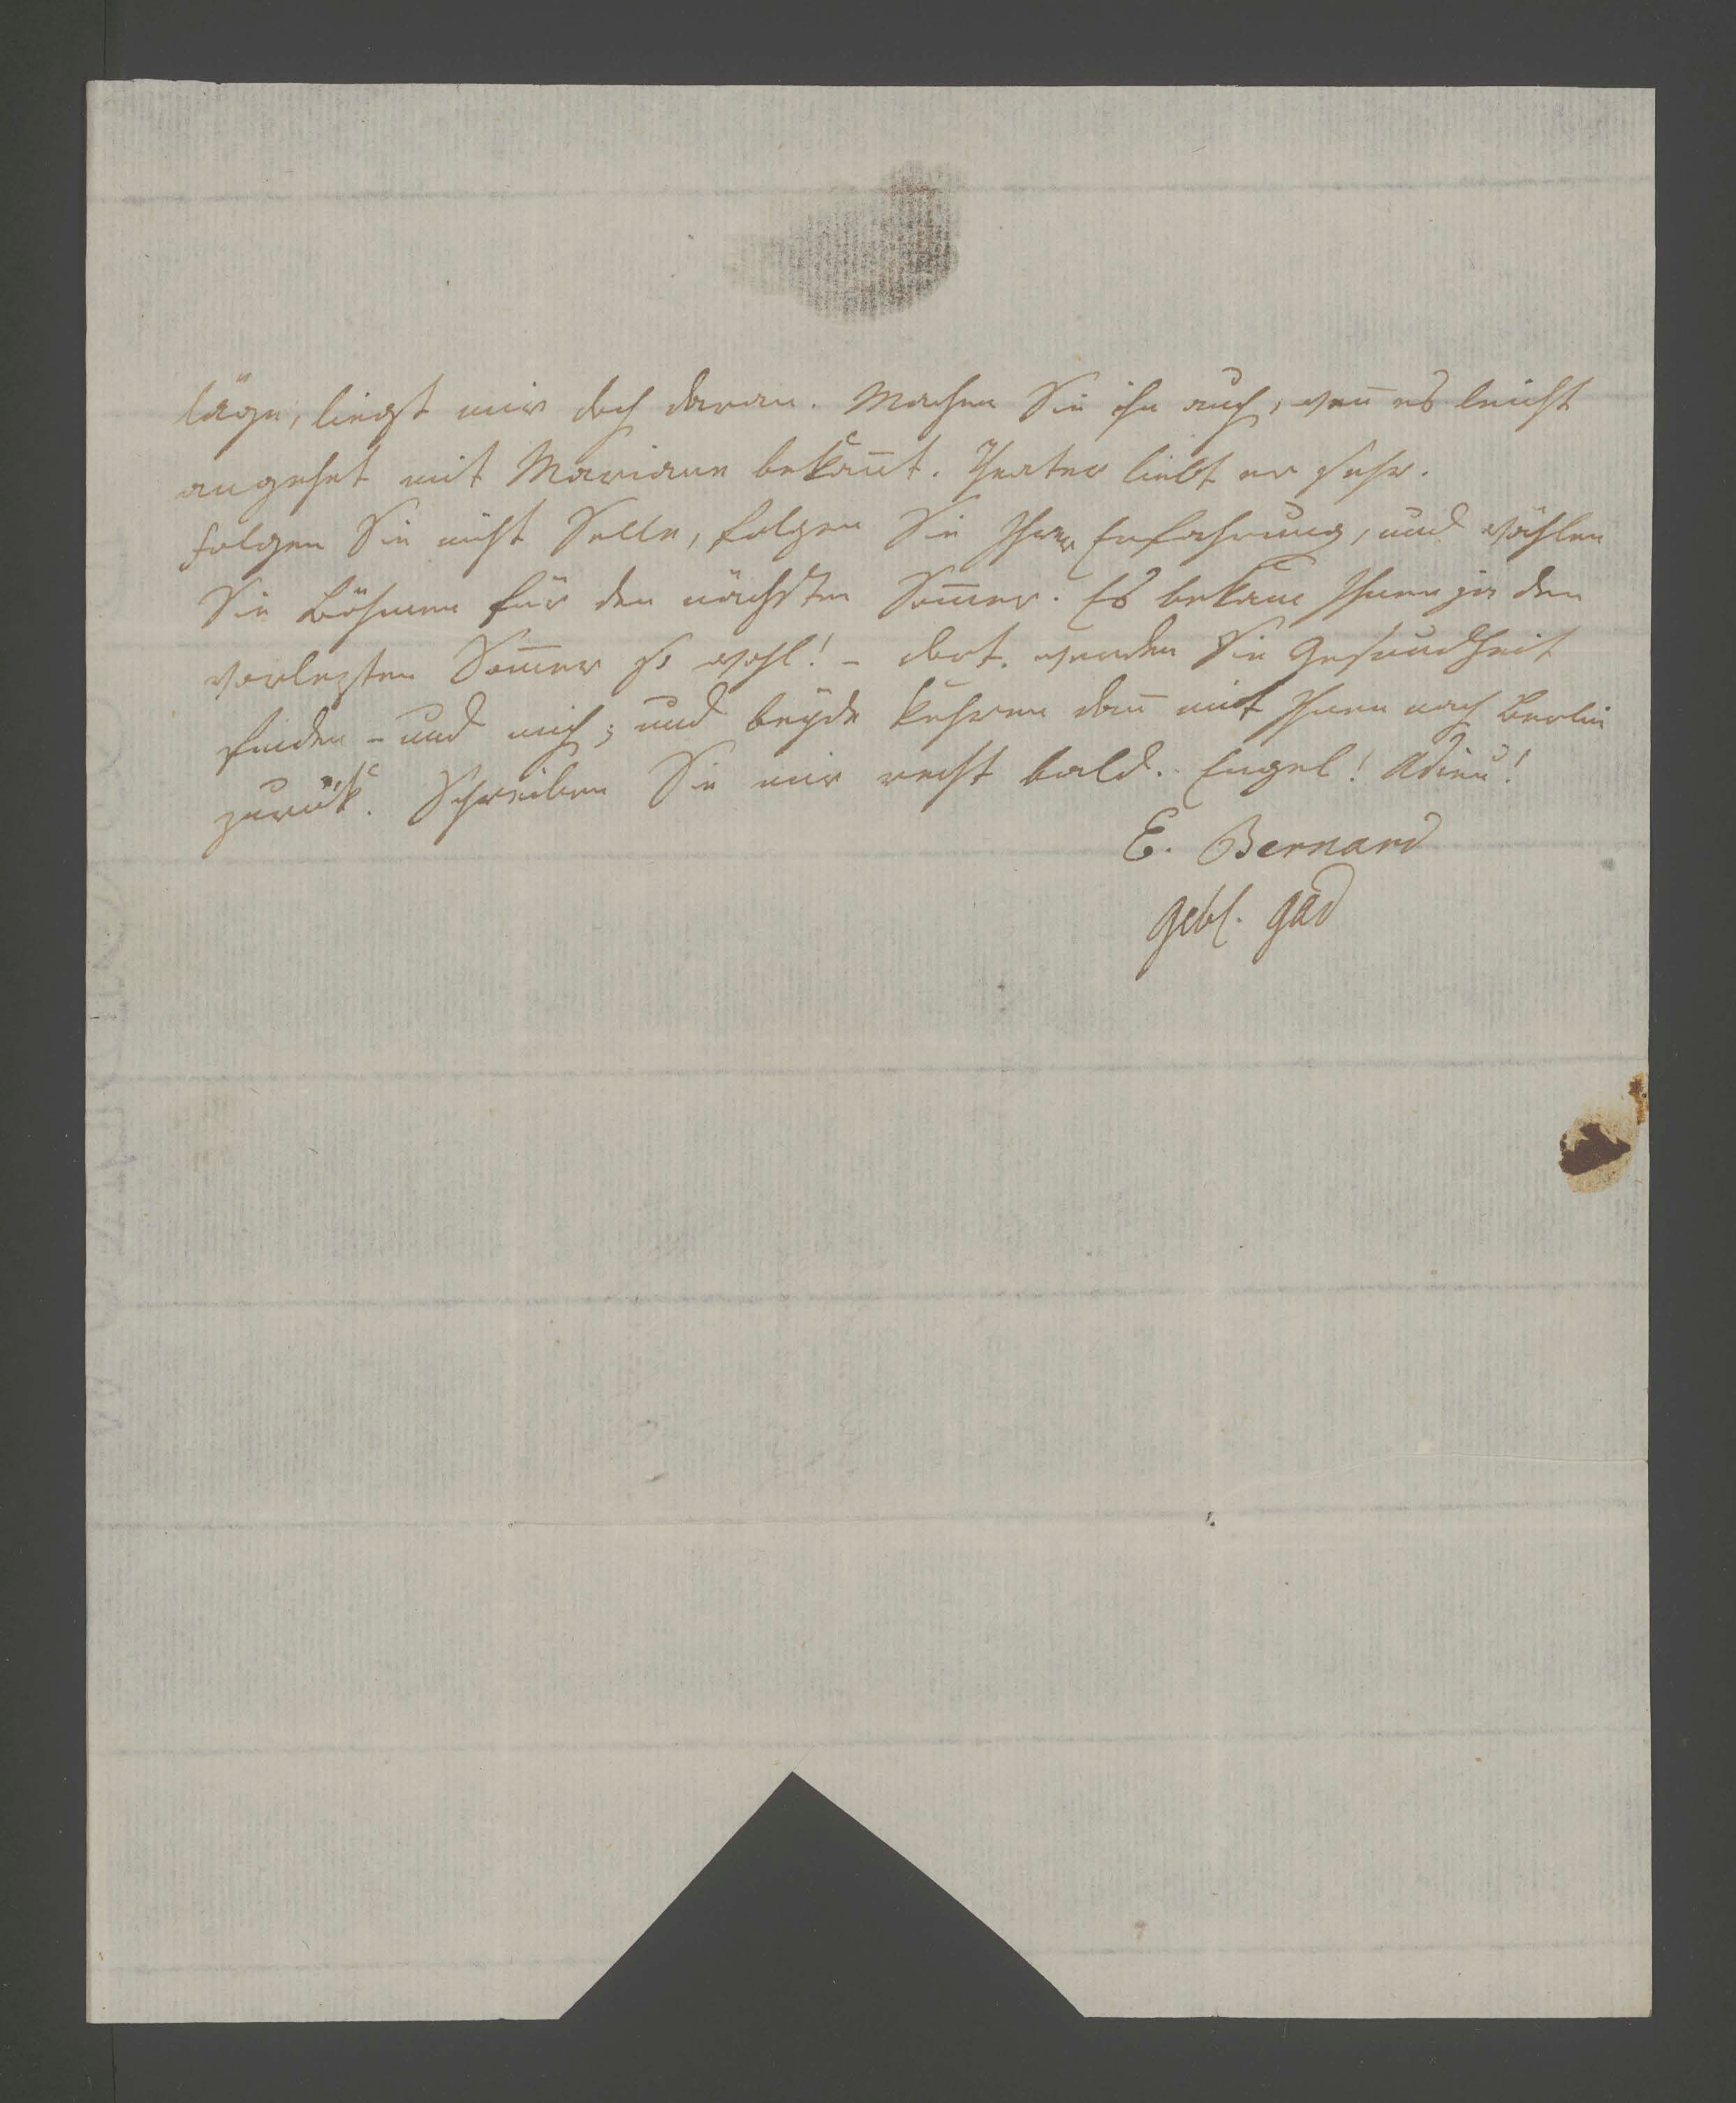 läge, liegt mir doch daran. Machen Sie ihn auch, wen̄ es leicht
angehet mit Mariane bekan̄t. Theater liebt er sehr.
Folgen Sie nicht Selle, folgen Sie Ihrer Erfahrung, und wählen
Sie Böhmen für den nächsten Som̄er. Es bekam Ihnen ja den
vorlezten Som̄er so wohl! – dort werden Sie Gesundheit
finden – und mich; und beÿde kehren dan̄ mit Ihnen nach Berlin
zurück. Schreiben Sie mir recht bald. Engel! Adieu!
E. Bernard
geb. Gad